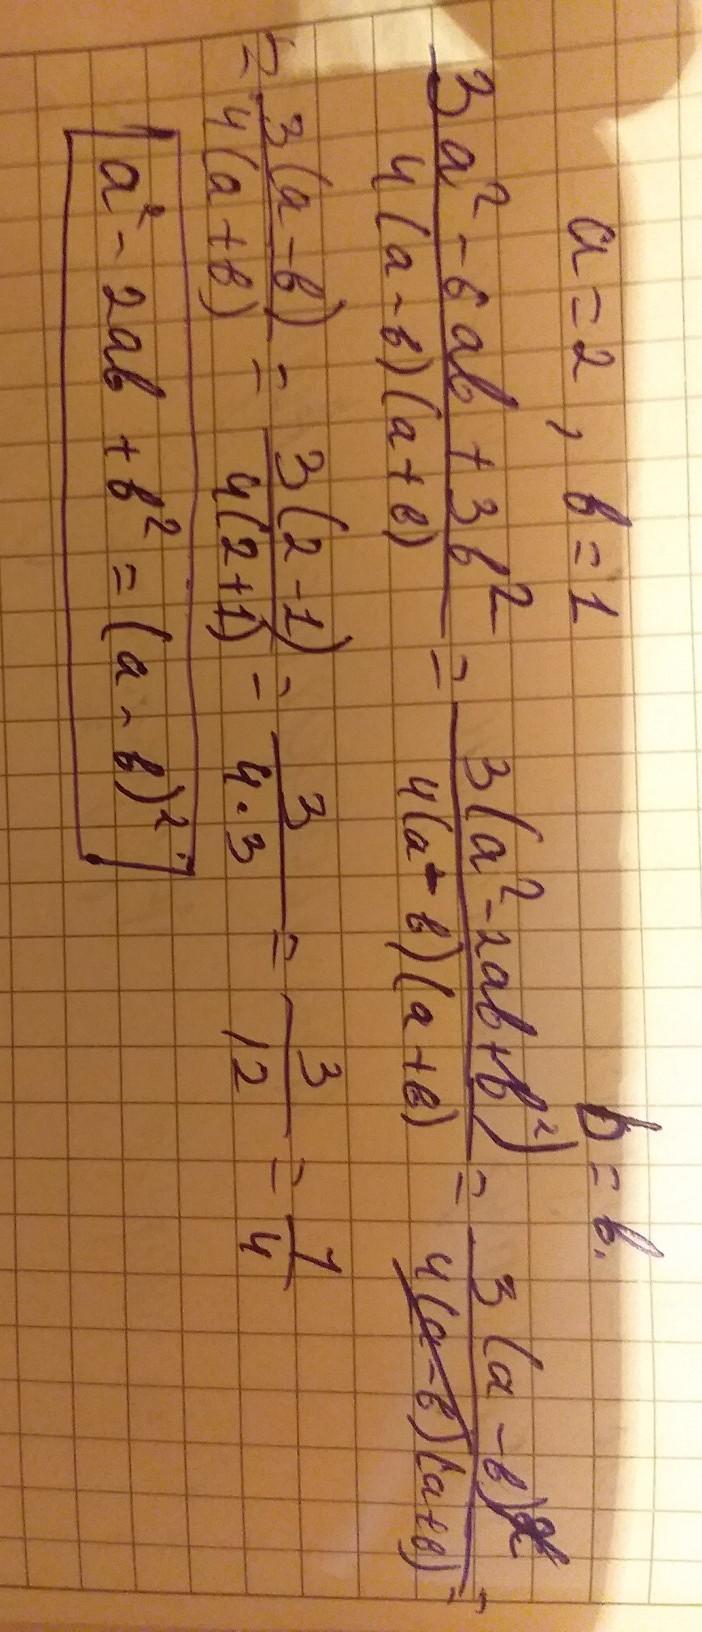 a = 2, b = 1        b = b.
(3a² - 6ab + 3b²) / (4(a - b)(a + b)) = (3(a² - 2ab + b²)) / (4(a - b)(a + b)) = (3(a - b)²) / (4(a - b)(a + b)) =
= (3(a - b)) / (4(a + b)) = (3(2 - 1)) / (4(2 + 1)) = 3 / (4 · 3) = 3 / 12 = 1 / 4
a² - 2ab + b² = (a - b)²